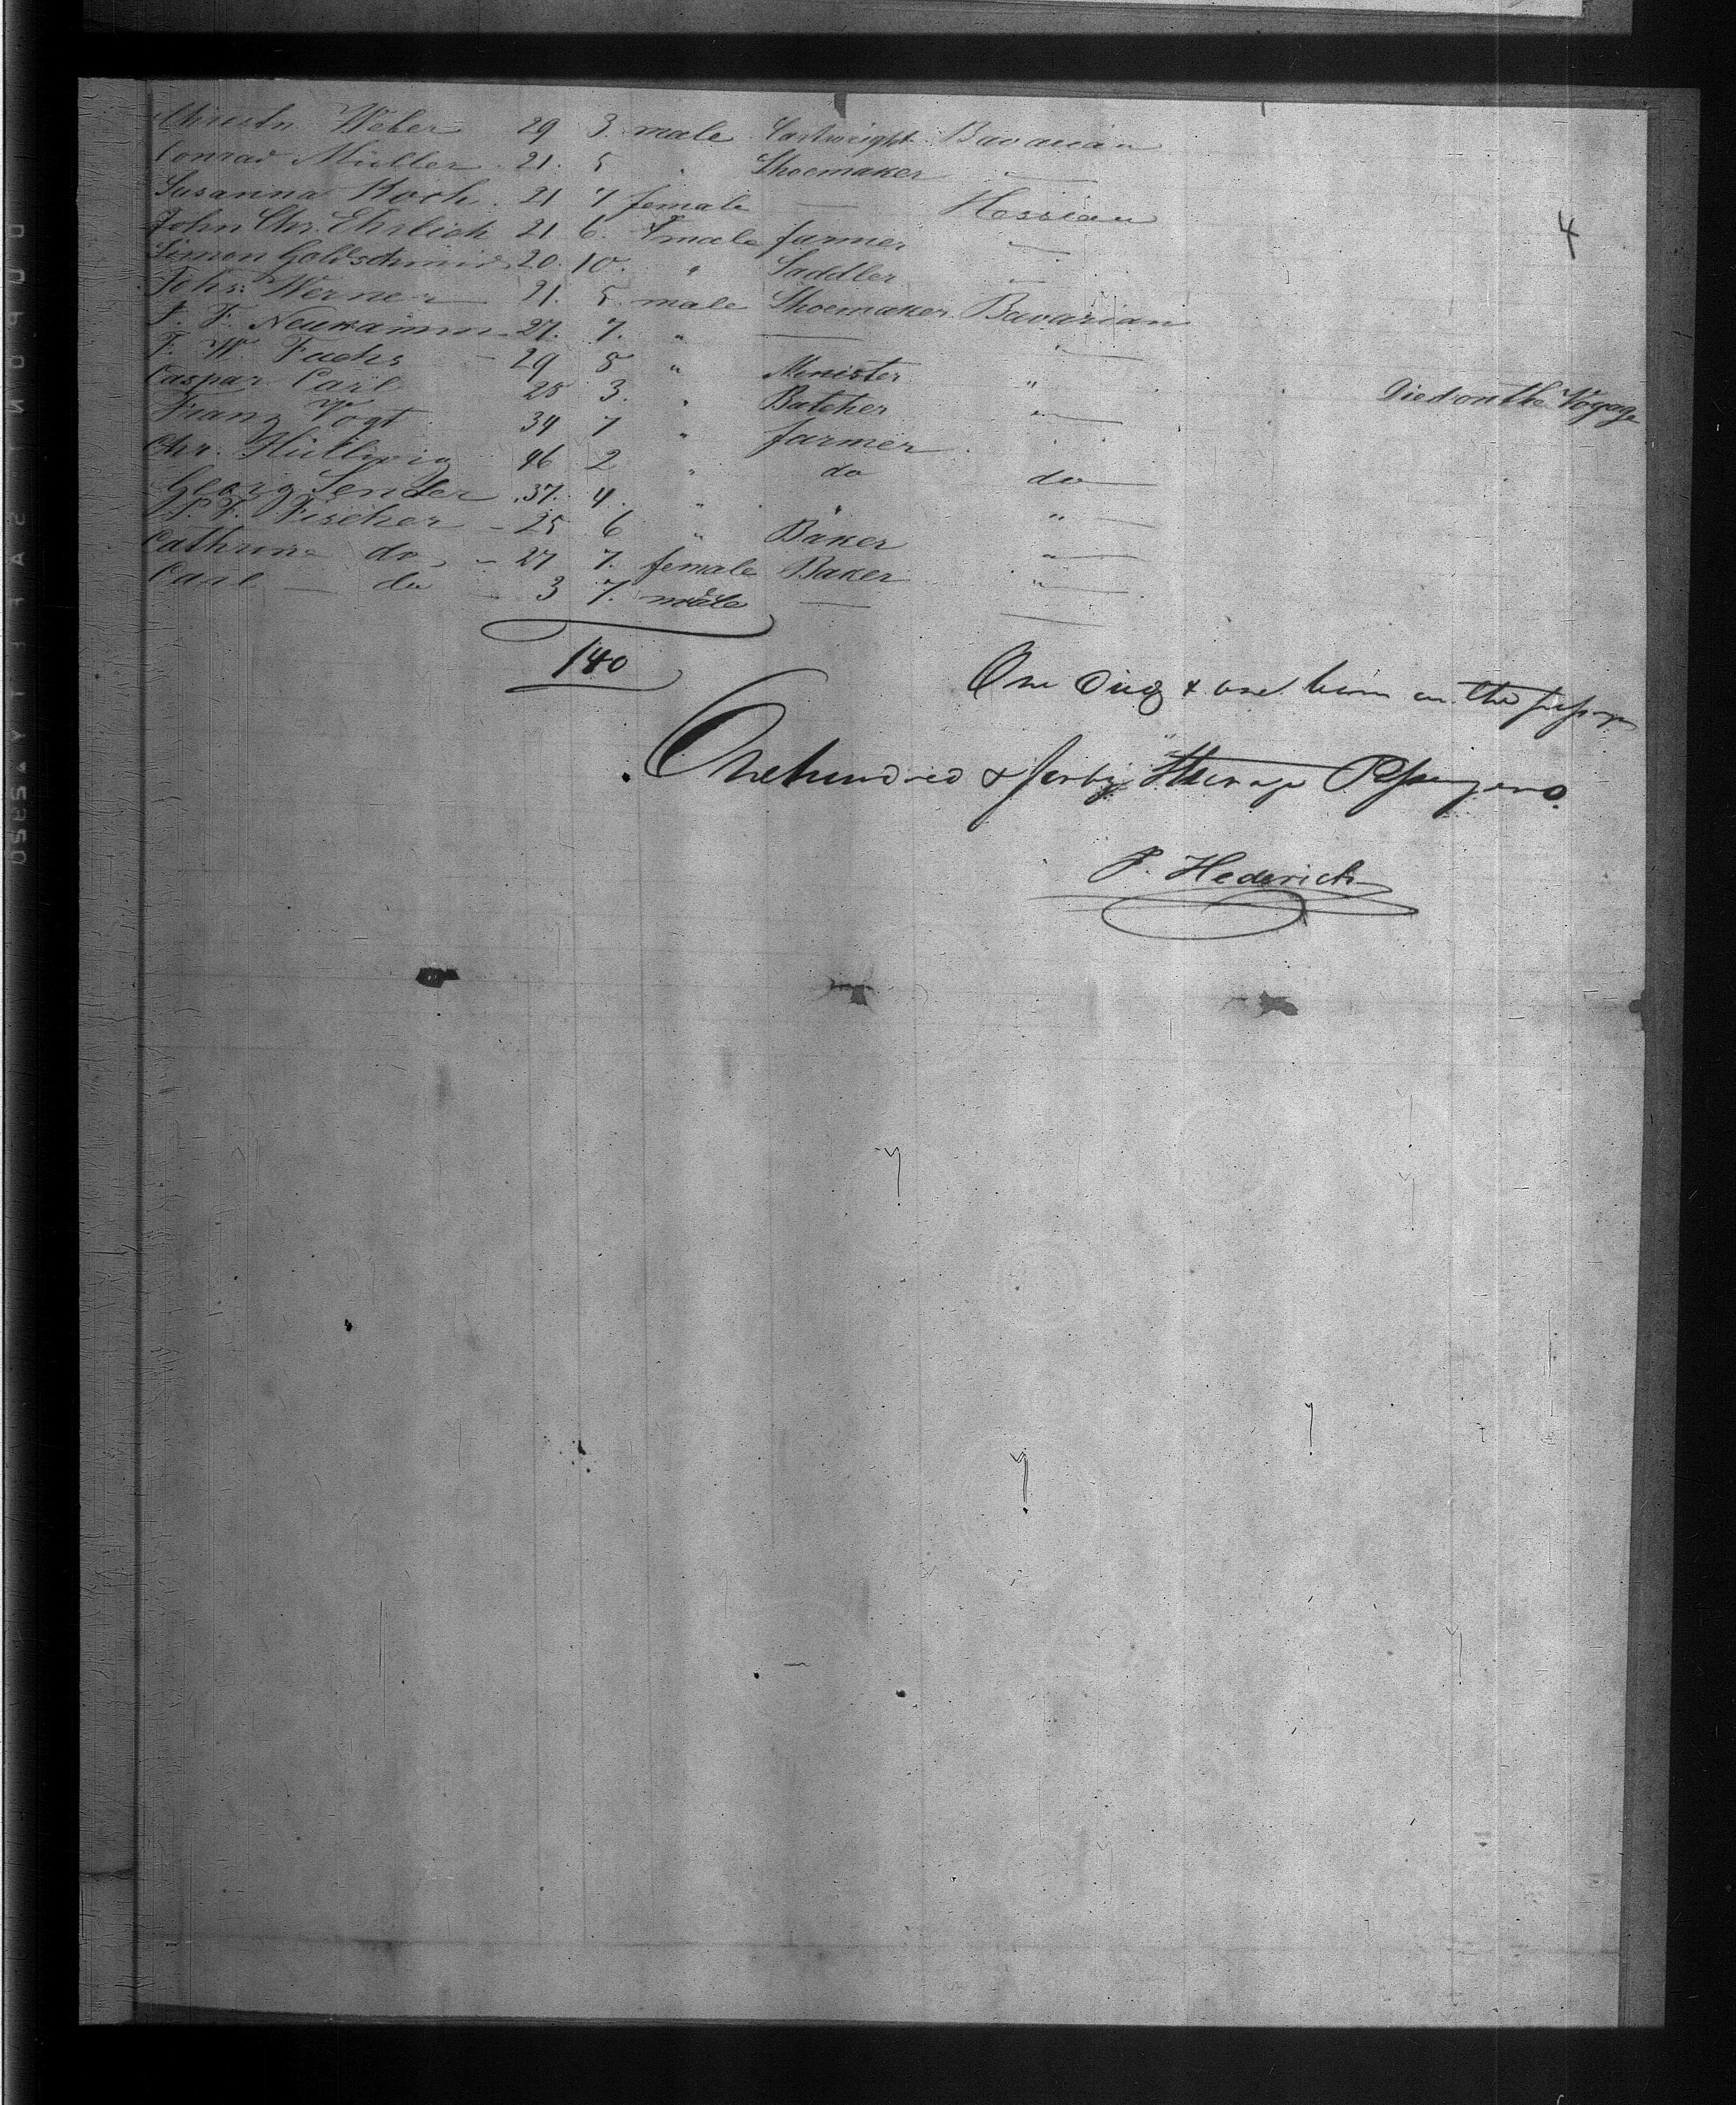 Christn. Weber 29 3. male Cartwright Bavarian
Conrad Müller. 21. 5 " Shoemaker "
Susanna Koch. 21 7 female — Hessian
4
John Chr. Ehrlich 21 6. male farmer "
Simon Goldschmid 20. 10. " Saddler "
Johs. Werner 21. 5 male Shoemaker Bavarian
F. Neukamm 27. 7. " — "
F. W. Fuchs – 29 8 " Minister "
Caspar Carl 28 3. " Butcher " Died on the Voyage
Franz Vogt 34 7 " farmer "
Chr. 46 2 " do do
Georg 37. 4. " " "
Fischer – 25 6 " Baker "
Cathrina do – 27 7. female Baker "
Carl — do – 3 7. male —
140
One Died & one born on the passage
One hundred & forty Steerage Passengers.
P. Hederich